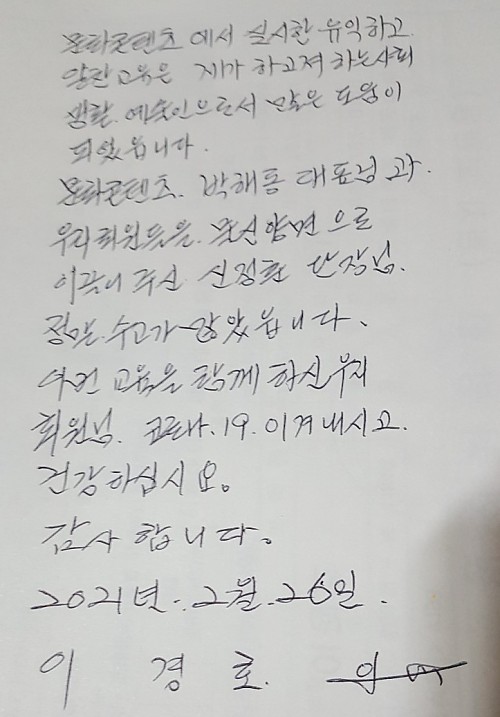 문화콘텐츠 에서 실시한 유익하고
알찬교육은 제가 하고져 하는사회
생활. 예술인으로서 많은 도움이
되었읍니다.
문화콘텐츠. 박해동 대표님 과.
우리회원들을 물심양면 으로
이끌어 주신 신정호 단장님.
정말 수고가 많았읍니다.
이번 교육을 함께 하신 우리
회원님. 코로나.19.이겨내시고.
건강하십시요。
감사 합니다。
2021년. 2월. 26일.
이 경 호.